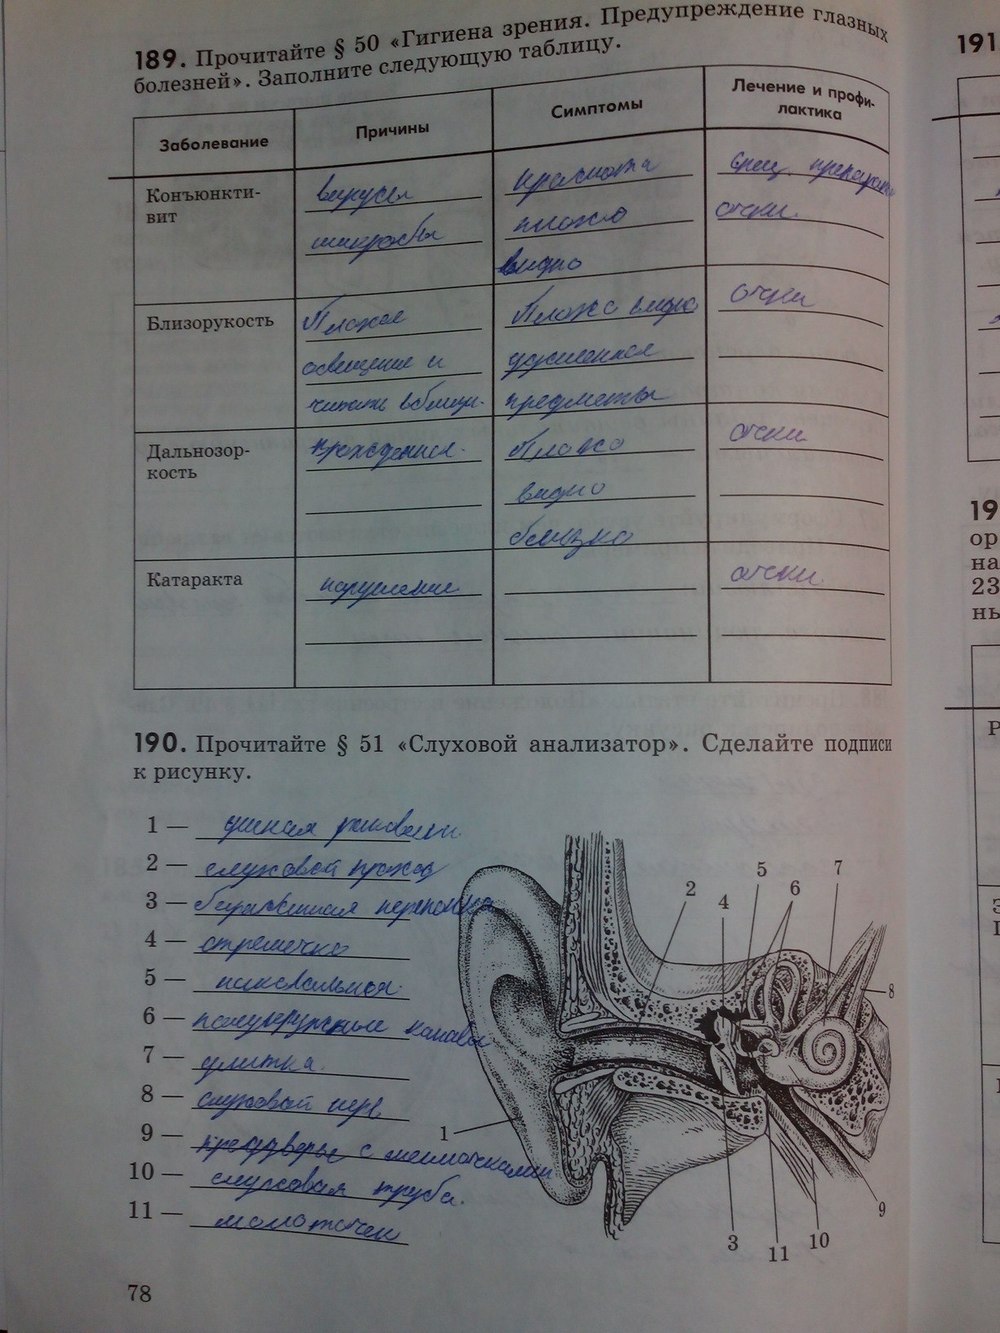 189. Прочитайте § 50 «Гигиена зрения. Предупреждение глазных
болезней». Заполните следующую таблицу.
Заболевание Причины Симптомы Лечение и профи-
лактика
Конъюнкти-
вит
вирусы
микробы
краснота
плохо
видно
спец. препараты
очки
Близорукость
Плохое
освещение и
читать вблизи.
Плохо видно
удаленные
предметы
очки
Дальнозор-
кость
врожденная.
Плохо
видно
близко
очки
Катаракта
нарушение
очки.
190. Прочитайте § 51 «Слуховой анализатор». Сделайте подписи
к рисунку.
1 — ушная раковина
2 — слуховой проход
3 — барабанная перепонка
4 — стремечко
5 — наковальная
6 — полукружные каналы
7 — улитка
8 — слуховый нерв
9 — преддверье с мешочками
10 — слуховая труба.
11 — молоточек
2
4
5
6
7
8
1
3
11
10
9
78
191
19
ор
на
23
ны
Р